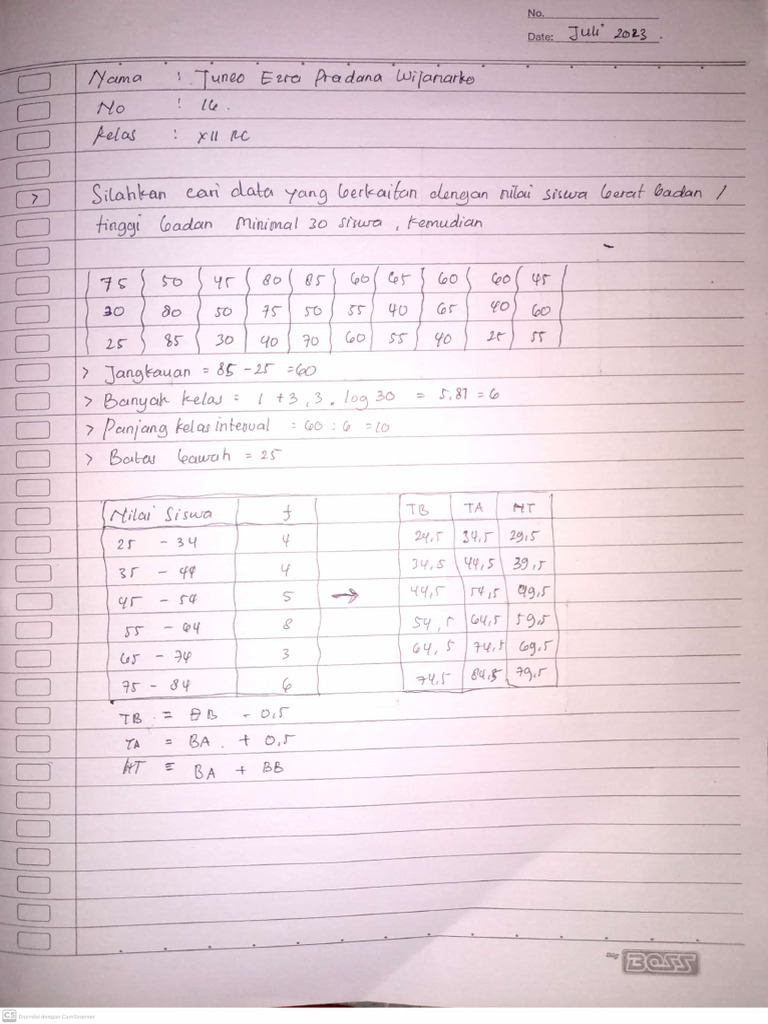 No.
Date: Juli 2023.
Nama : Juneo Ezra Pradana Wijanarko
No : 16.
Kelas : XII RC
> Silahkan cari data yang berkaitan dengan nilai siswa berat badan /
tinggi badan Minimal 30 siswa, Kemudian
75 50 45 80 85 60 65 60 60 45
30 80 50 75 50 55 40 65 40 60
25 85 30 40 70 60 55 40 25 55
> Jangkauan = 85 - 25 = 60
> Banyak kelas = 1 + 3,3. log 30 = 5,87 = 6
> Panjang kelas interval = 60 : 6 = 10
> Batas bawah = 25
Nilai Siswa f TB TA NT
25 - 34 4 24,5 34,5 29,5
35 - 44 4 34,5 44,5 39,5
45 - 54 5 → 44,5 54,5 49,5
55 - 64 8 54,5 64,5 59,5
65 - 74 3 64,5 74,5 69,5
75 - 84 6 74,5 84,5 79,5
TB = BB - 0,5
TA = BA + 0,5
NT = BA + BB
BOSS
CS Dipindai dengan CamScanner